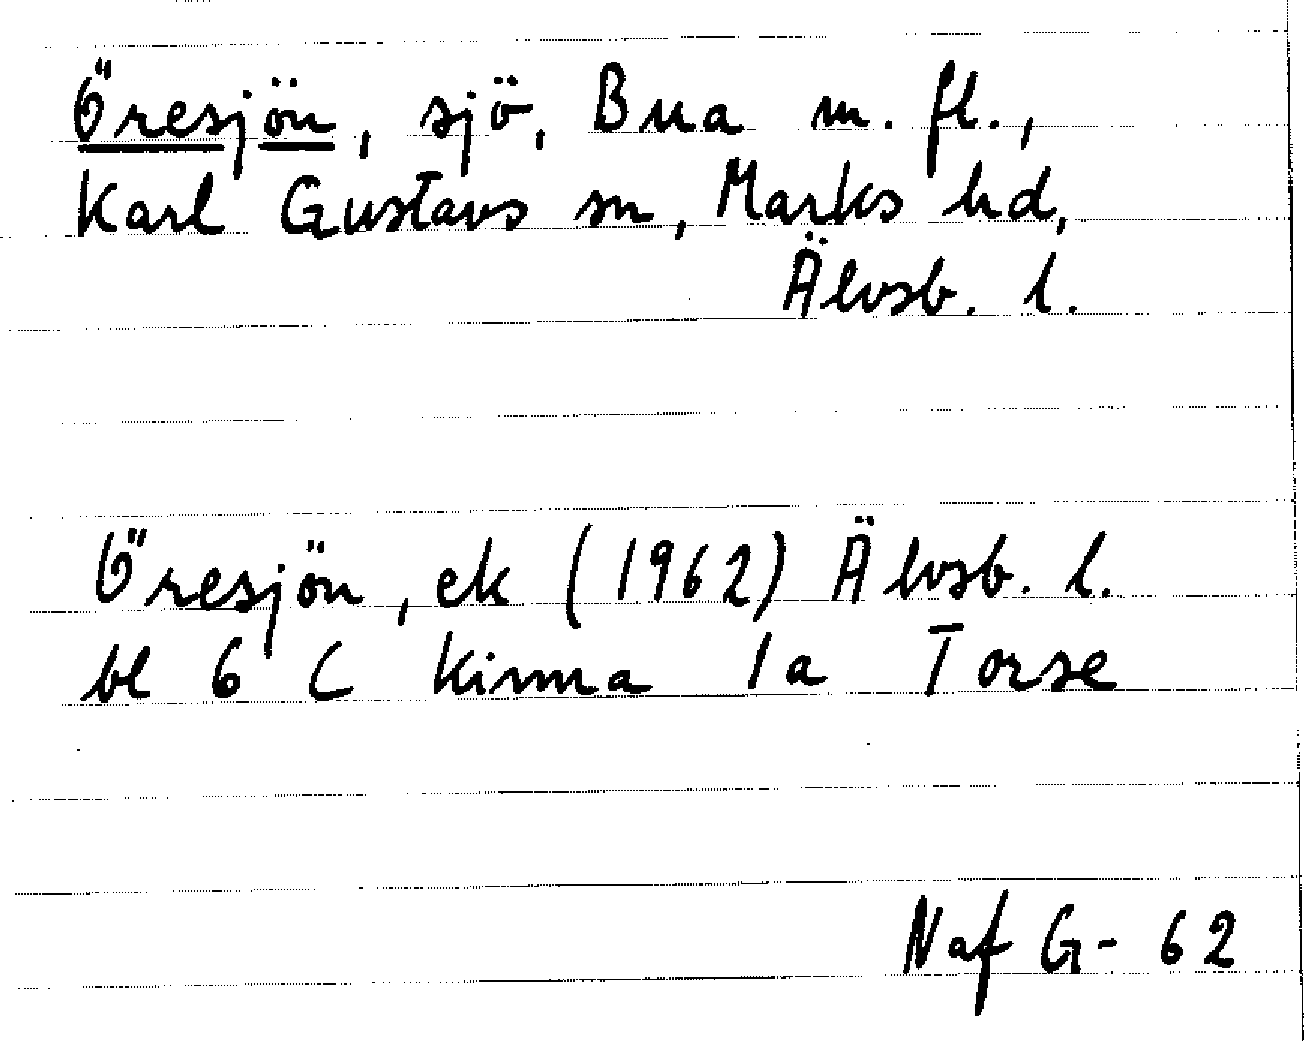 Öresjön, sjö, Bua m. fl.,
Karl Gustavs sn, Marks hd,
Älvsb. l.
Öresjön, ek (1962) Älvsb. l.
bl 6 C Kinna 1a Torse
Naf G-62